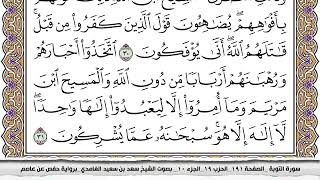 بِأَفْوَٰهِهِمْ يُضَٰهِـُٔونَ قَوْلَ ٱلَّذِينَ كَفَرُوا۟ مِن قَبْلُ
قَٰتَلَهُمُ ٱللَّهُ أَنَّىٰ يُؤْفَكُونَ ٣٠ ٱتَّخَذُوٓا۟ أَحْبَارَهُمْ
وَرُهْبَٰنَهُمْ أَرْبَابًا مِّن دُونِ ٱللَّهِ وَٱلْمَسِيحَ ٱبْنَ
مَرْيَمَ وَمَآ أُمِرُوٓا۟ إِلَّا لِيَعْبُدُوٓا۟ إِلَٰهًا وَٰحِدًا
لَّآ إِلَٰهَ إِلَّا هُوَ سُبْحَٰنَهُۥ عَمَّا يُشْرِكُونَ ٣١
سورة التوبة . الصفحة ١٩١ . الحزب ١٩ . الجزء ١٠ . بصوت الشيخ سعد بن سعيد الغامدي . برواية حفص عن عاصم